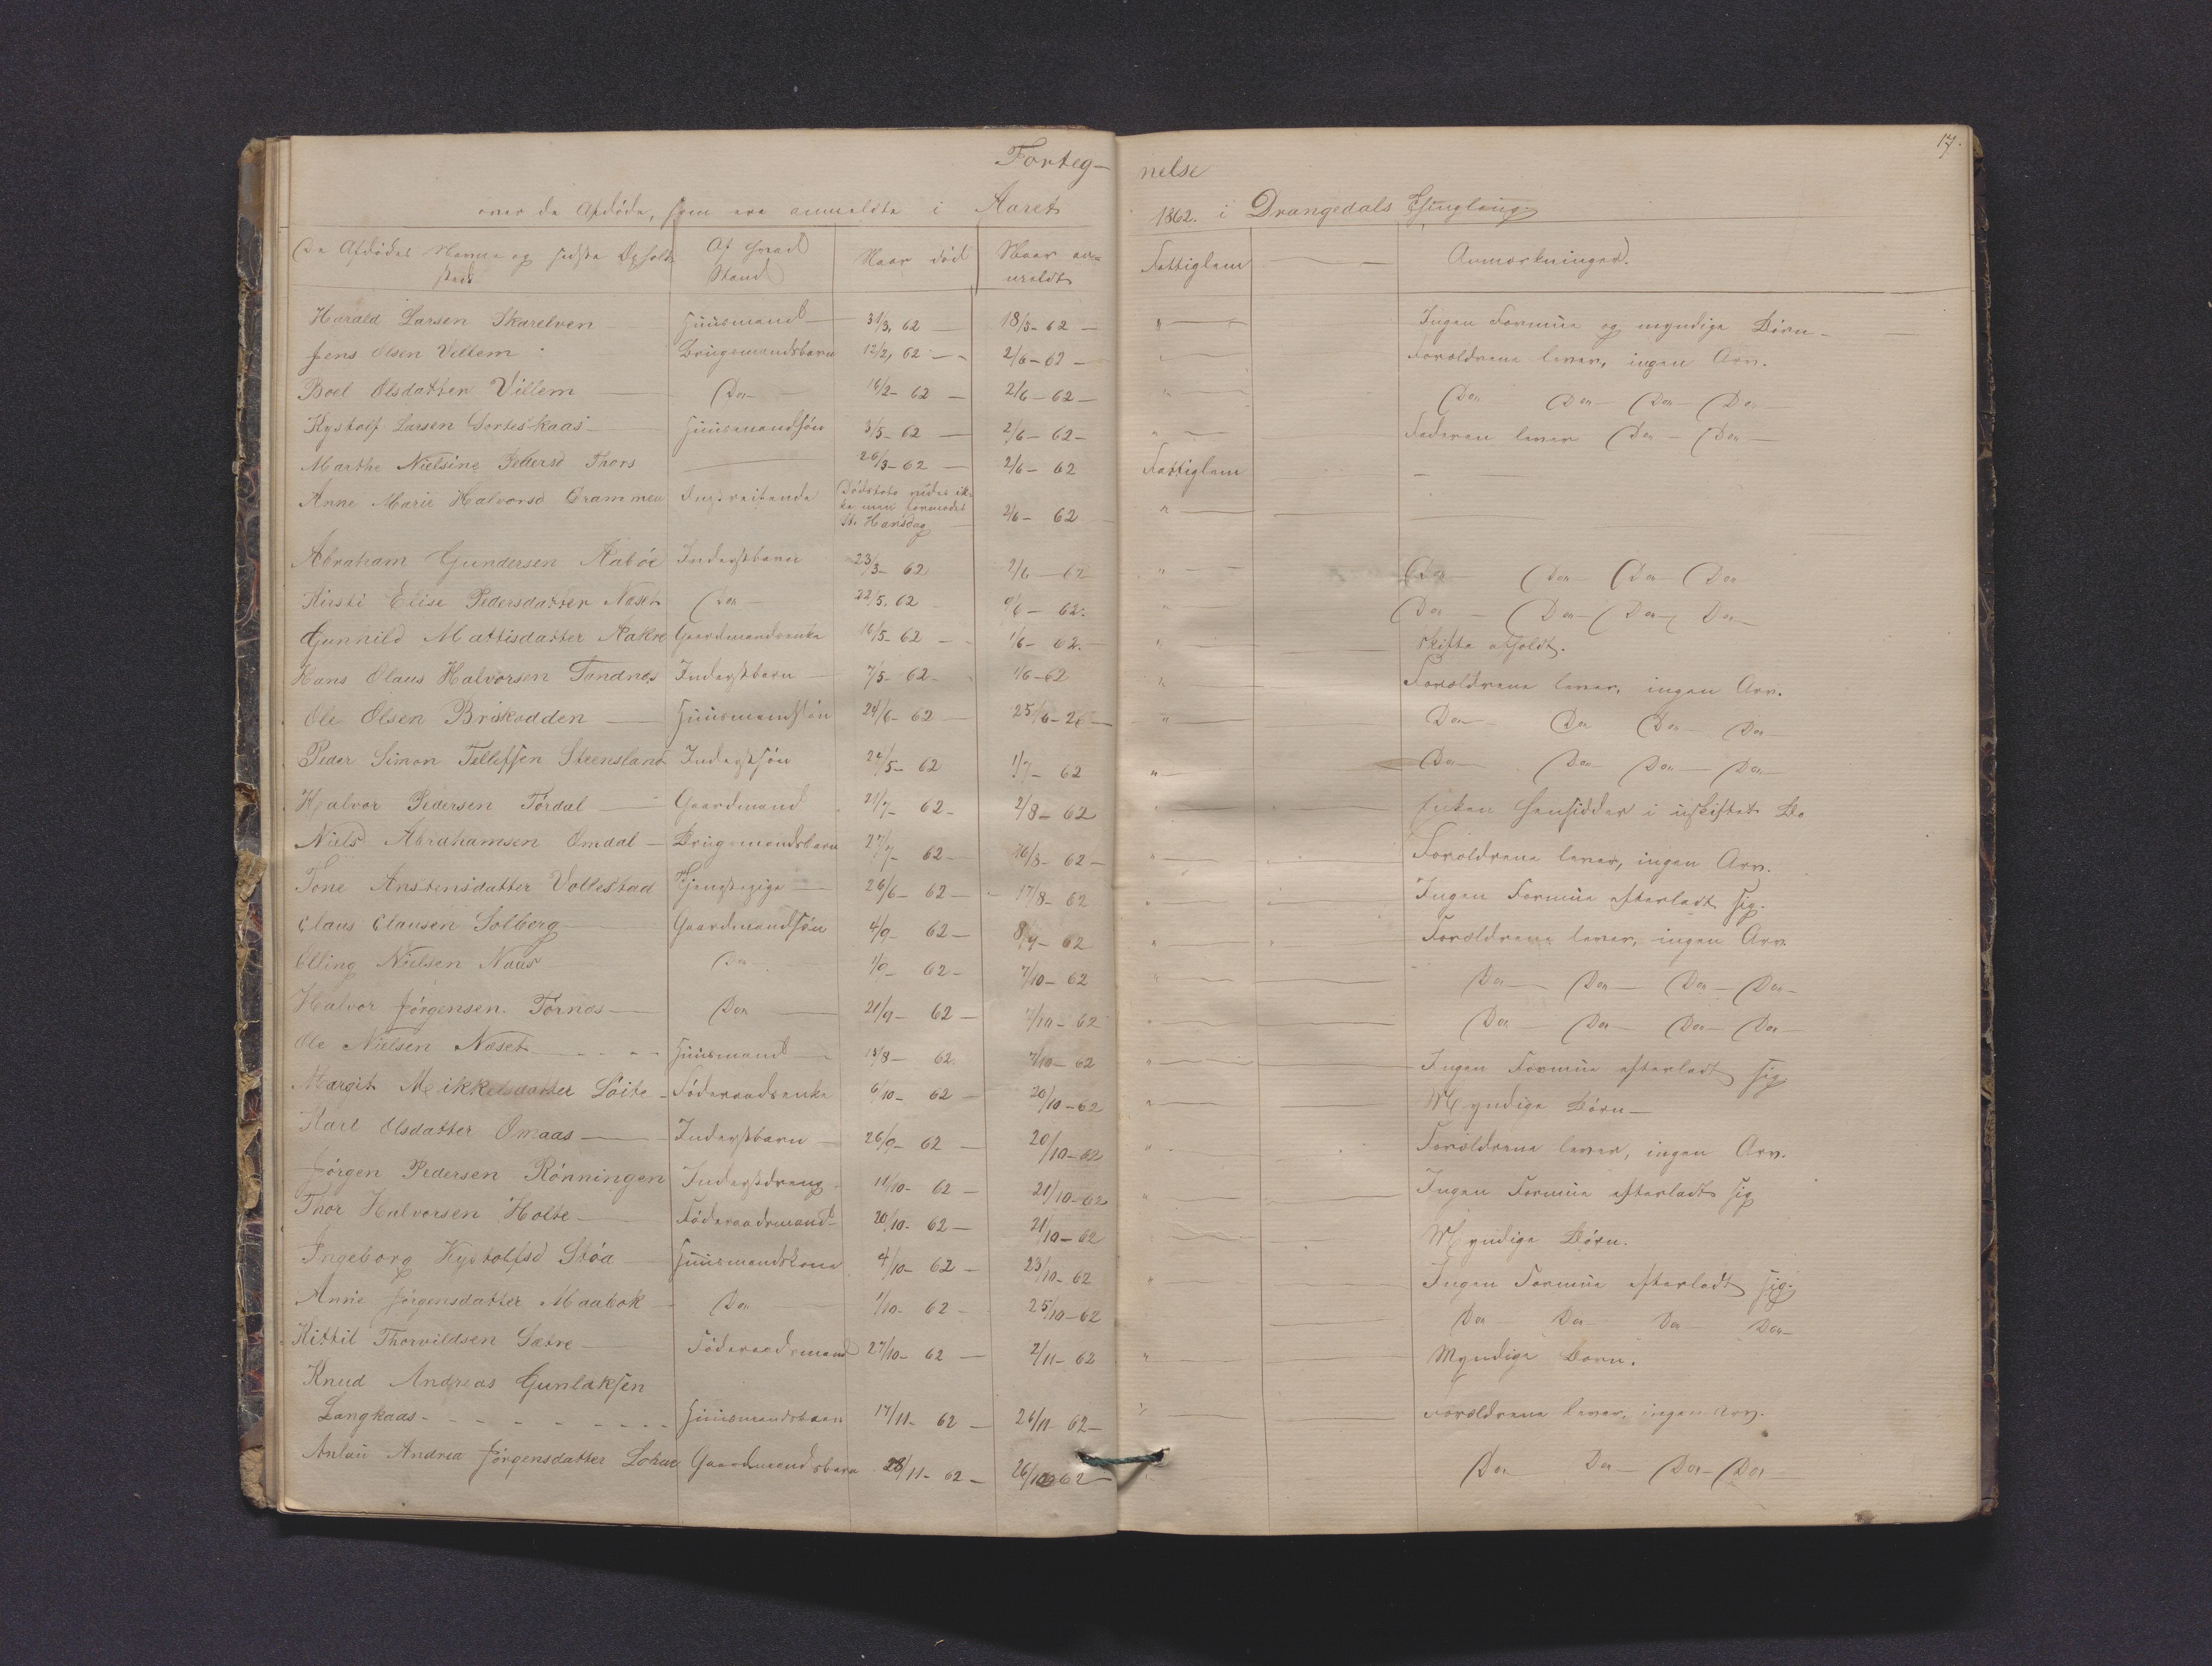 17.
Forteg-nelse
over de Afdöde, som ere anmeldte i Aaret 1862. i Drangedals Thinglaug
De Afdödes Navne og sidste Opholds Af hvad Naar död Naar an= Fattiglem Anmærkninger.
sted Stand meldt
Harald Larsen Skarelven Huusmand 31/3, 62 18/5-62 " Ingen Formue og myndige Börn
Jens Olsen Vellem Brugsmandsbarn 12/2, 62 2/6-62 " Forældrene lever, ingen Arv.
Boel Olsdatter Villem Do 16/2-62 2/6-62 " Do Do Do Do
Kystolf Larsen Dorteskaas Huusmandsön 3/5-62 2/6-62 " Faderen lever Do Do
Marthe Nielsine Pedersd Thors 26/3-62 2/6-62 Fattiglem
Anne Marie Halvorsd Brammen Dödstoto vides ik- 2/6-62 "
ke men formodes
St. Hansdag
Abraham Gundersen Aaböe Inderstbarn 23/3-62 2/6-62 " Do Do Do Do
Kirsti Elise Pedersdatter Næset Do 22/5, 62 /6-62. " Do Do Do Do
Gunhild Mattisdatter Aakre Gaardmandsenke 16/5-62 1/6-62. " Skifte afholdt.
Hans Olaus Halvorsen Tandnes Inderstbarn 7/5-62 1/6-62 " Forældrene lever, ingen Arv.
Ole Olsen Briskodden Huusmandsön 24/6-62 25/6-26 " Do Do Do Do
Peder Simon Tellefsen Steensland Inderstsön 2/5-62 1/7-62 " Do Do Do Do
Halvor Pedersen Tördal Gaardmand 21/7-62 2/8-62 " Enken hensidder i uskiftet Bo
Niels Abrahamsen Omdal Brugsmandsbarn 27/7-62 16/8-62 " Forældrene lever, ingen Arv.
Tone Anstensdatter Vollestad Tjenestepige 26/6-62 17/8-62 " Ingen Formue efterladt sig.
Claus Clausen Solberg Gaardmandsön 4/9-62 8/9-62 " Forældrene lever, ingen Arv.
Elling Nielsen Naas Do 1/9-62 7/10-62 " Do Do Do Do
Halvor Jörgensen Törnæs Do 21/9-62 7/10-62 " Do Do Do Do
Ole Nielsen Næset Huusmand 15/8-62 7/10-62 " Ingen Formue efterladt sig
Margit Mikkelsdatter Löite Föderaadsenke 6/10-62 20/10-62 " Myndige Börn
Kari Olsdatter Omaas Inderstbarn 26/9-62 20/10-62 " Forældrene lever, ingen Arv.
Jörgen Pedersen Rönningen Inderstdreng 11/10-62 21/10-62 " Ingen Formue efterladt sig
Thor Halvorsen Holte Föderaadsmand 20/10-62 21/10-62 Myndige Börn.
Ingeborg Kystolfsd Stöa Huusmandskone 4/10-62 23/10-62 " Ingen Formue efterladt sig.
Anne Jörgensdatter Maabok Do 1/10-62 25/10-62 Do Do Do Do
Kittil Thorvildsen Sætre Föderaadsmand 27/10-62 2/11-62 " Myndige Börn.
Knud Andreas Gunlaksen
Langkaas Huusmandsbarn 17/11-62 26/11-62 " Forældrene lever, ingen Arv.
Anlau Andrea Jörgensdatter Lohne Gaardmandsbarn 28/11-62 26/12-62 Do Do Do Do